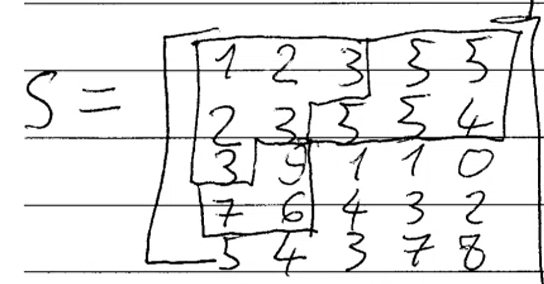 S = 1 2 3 5 5
2 3 5 5 4
3 9 1 1 0
7 6 4 3 2
5 4 3 7 8